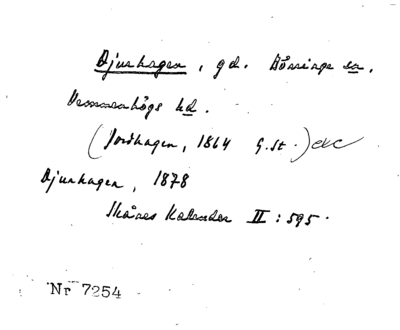 Djurhagen, gd. Börringe sn,
Vemmenhögs hd.
(Jordhagen, 1864 G.St.) EKC
Djurhagen, 1878
Skånes Kalender II : 595.
Nr 7254